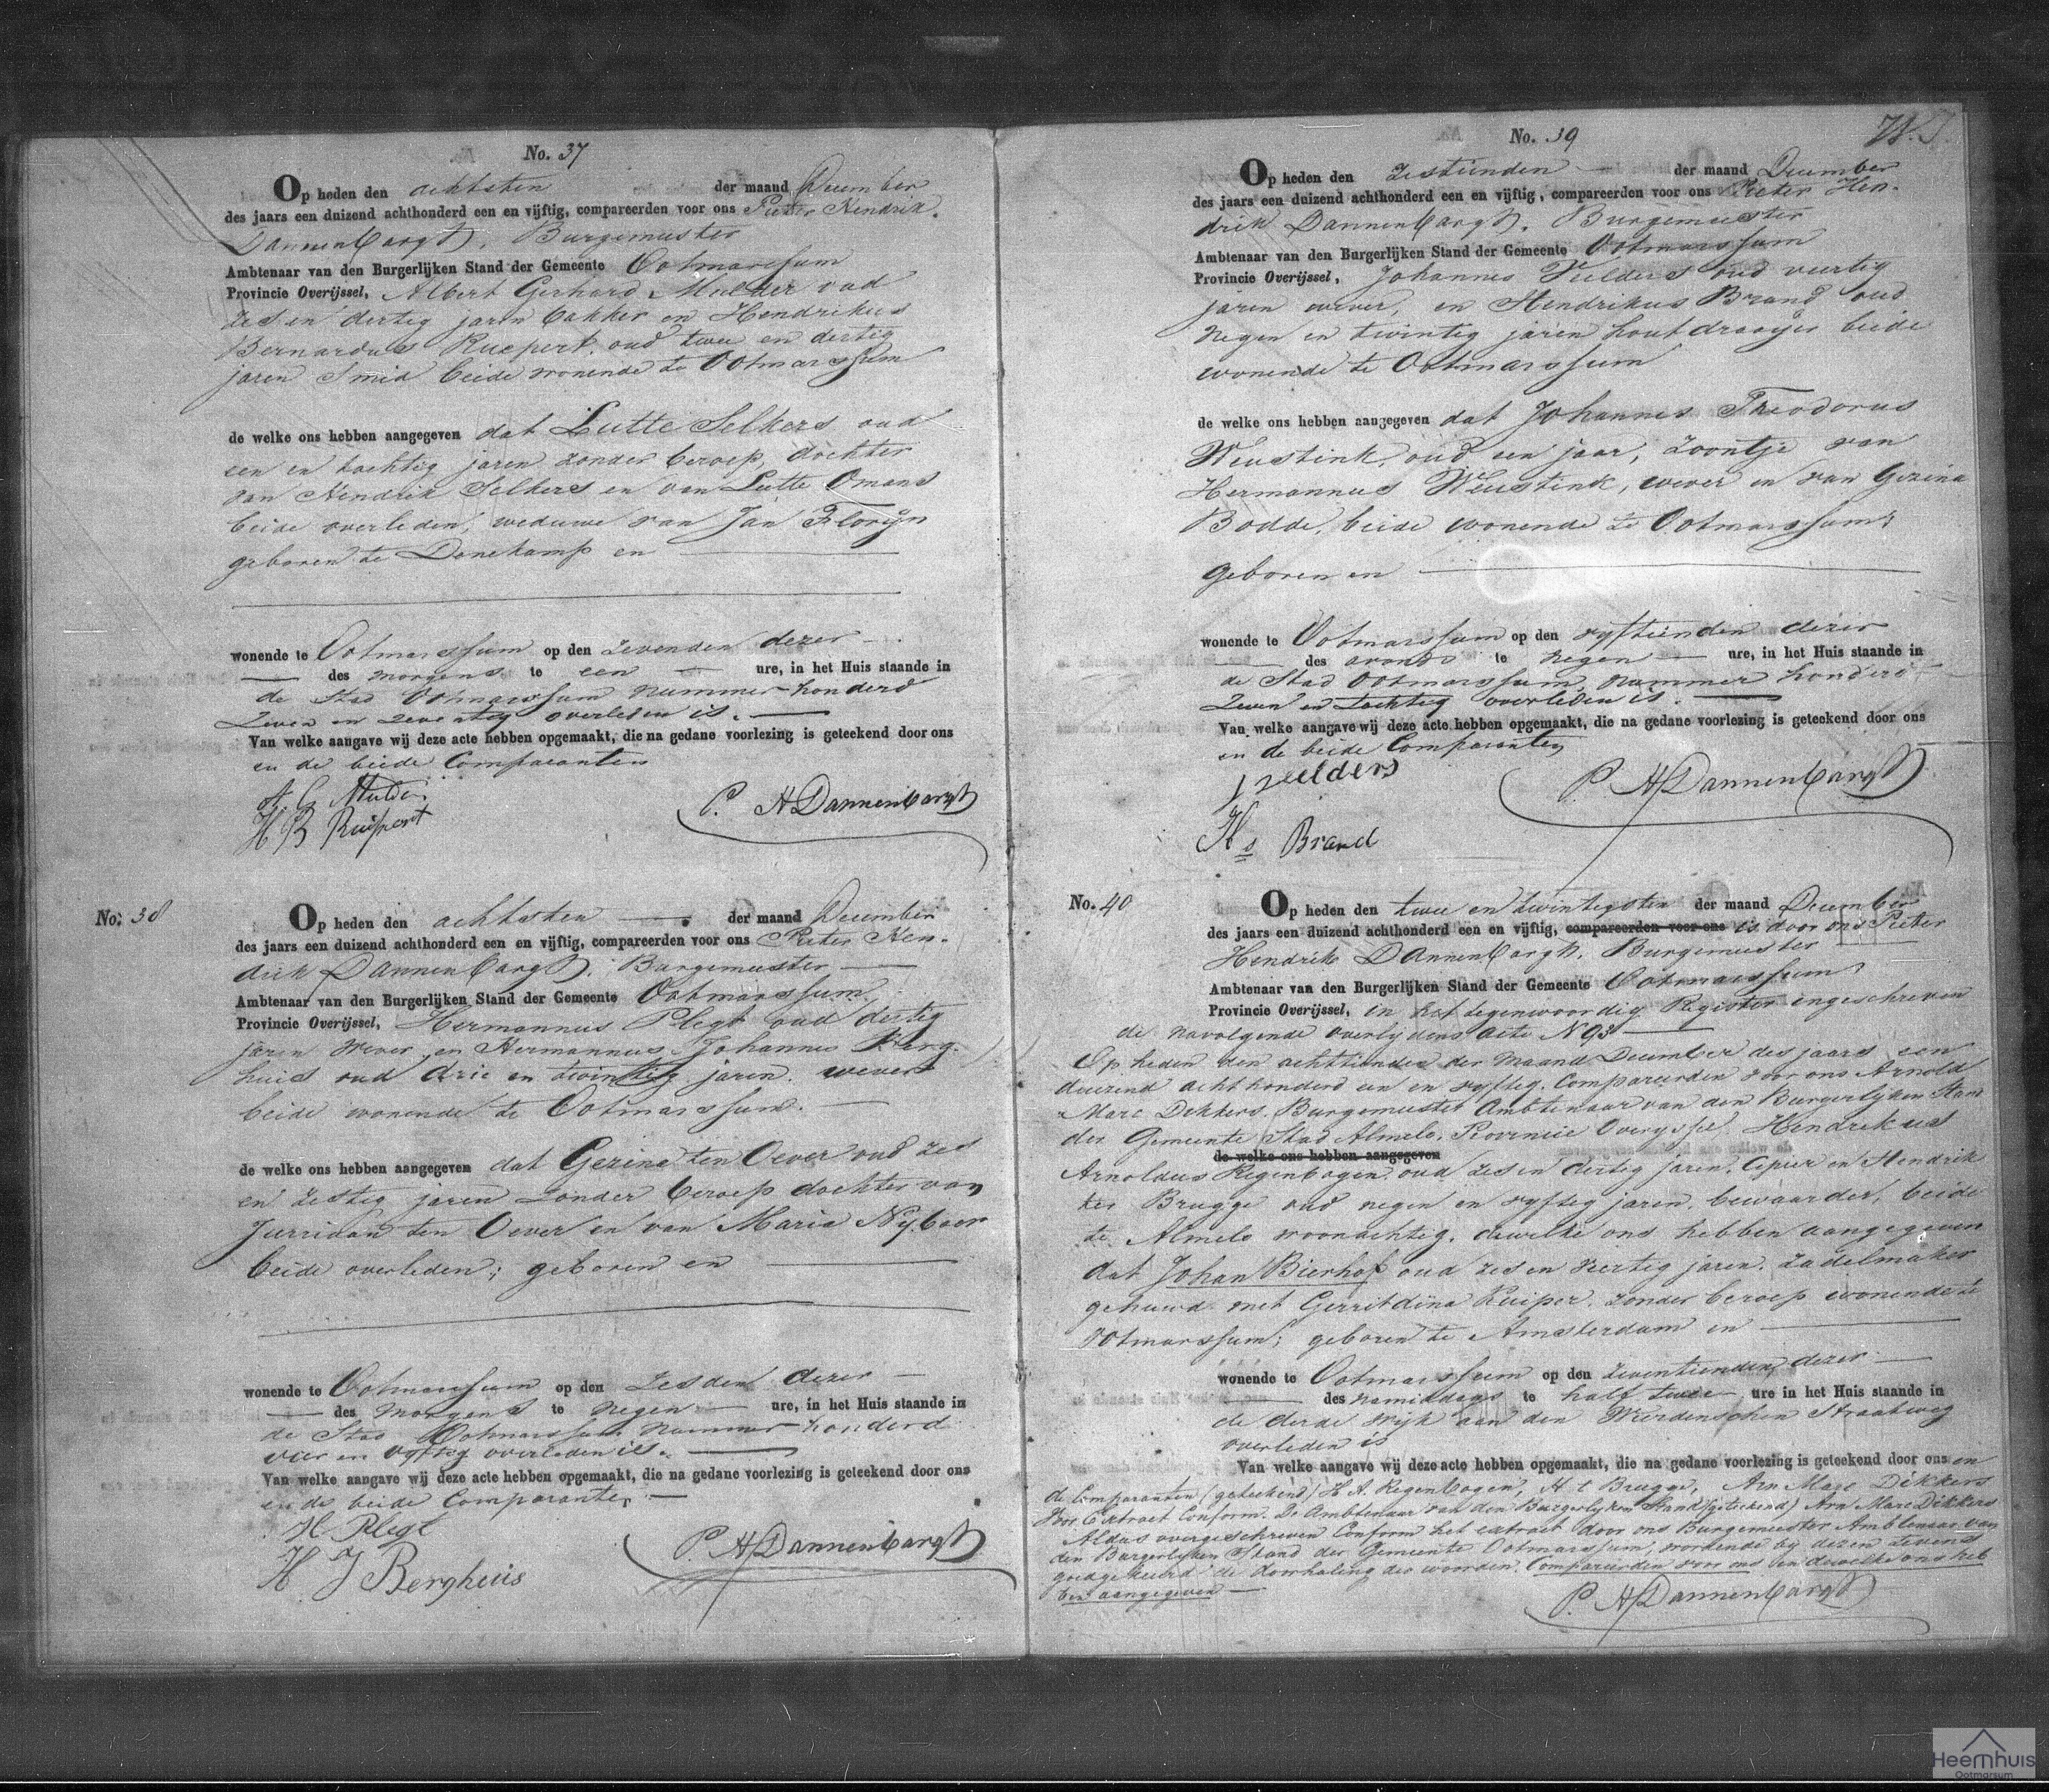 No. 37
Op heden den achtsten der maand December
des jaars een duizend achthonderd een en vijftig, compareerden voor ons Pieter Hendrik
Dannenbargh, Burgemeester
Ambtenaar van den Burgerlijken Stand der Gemeente Ootmarssum
Provincie Overijssel, Albert Gerhard Mulder oud
zes en dertig jaren bakker en Hendrikus
Bernardus Ruepert oud twee en dertig
jaren Smid beide wonende te Ootmarssum
de welke ons hebben aangegeven dat Lutte Selkers oud
een en tachtig jaren zonder beroep, dochter
van Hendrik Selkers en van Lutte Omans
beide overleden, weduwe van Jan Floryn
geboren te Denekamp en
wonende te Ootmarssum op den zevenden dezer
des morgens te een ure, in het Huis staande in
de Stad Ootmarssum nummer honderd
zeven en zeventig overleden is.
Van welke aangave wij deze acte hebben opgemaakt, die na gedane voorlezing is geteekend door ons
en de beide Comparanten
A. G. Mulder
P. H Dannenbargh
H B Ruepert
No. 38
Op heden den achtsten der maand December
des jaars een duizend achthonderd een en vijftig, compareerden voor ons Pieter Hen-
drik Dannenbargh, Burgemeester
Ambtenaar van den Burgerlijken Stand der Gemeente Ootmarssum,
Provincie Overijssel, Hermannus Plegt oud dertig
jaren wever en Hermannus Johannes Berg-
huis oud drie en twintig jaren, wever
beide wonende te Ootmarssum.
de welke ons hebben aangegeven dat Gezina ten Oever oud zes
en zestig jaren zonder beroep dochter van
Jurridan ten Oever en van Maria Nyboer
beide overleden; geboren en
wonende te Ootmarssum op den zesden dezer
des morgens te negen ure, in het Huis staande in
de Stad Ootmarssum nummer honderd
vier en vyftig overleden is.
Van welke aangave wij deze acte hebben opgemaakt, die na gedane voorlezing is geteekend door ons
en de beide Comparanten
H Plegt
P. H Dannenbargh
H J Berghuis
No. 39
Op heden den zestienden der maand December
des jaars een duizend achthonderd een en vijftig, compareerden voor ons Pieter Hen-
drik Dannenbargh, Burgemeester
Ambtenaar van den Burgerlijken Stand der Gemeente Ootmarssum
Provincie Overijssel, Johannes Velders oud veertig
jaren wever, en Hendrikus Brand oud
negen en twintig jaren houtdraaijer beide
wonende te Ootmarssum
de welke ons hebben aangegeven dat Johannes Theodorus
Weustink, oud een jaar, zoontje van
Hermannus Weustink, wever en van Gezina
Bodde, beide wonende te Ootmarssum;
geboren en
wonende te Ootmarssum op den vyftienden dezer
des avonds te negen ure, in het Huis staande in
de Stad Ootmarssum, nummer honderd
zeven en tachtig overleden is.
Van welke aangave wij deze acte hebben opgemaakt, die na gedane voorlezing is geteekend door ons
en de beide Comparanten
J Velders
P. H Dannenbargh
Hs Brand
No. 40
Op heden den twee en twintigsten der maand December
des jaars een duizend achthonderd een en vijftig, compareerden voor ons is door ons Pieter
Hendrik Dannenbargh, Burgemeester
Ambtenaar van den Burgerlijken Stand der Gemeente Ootmarssum
Provincie Overijssel, in het tegenwoordig Register ingeschreven
de navolgende overlydens acte N 93
Op heden den achttienden der maand December des jaars een
duizend achthonderd een en vyftig, Compareerden voor ons Arnold
Marc Dikkers, Burgemeester Ambtenaar van den Burgerlyken Stand
der Gemeente Stad Almelo, Provincie Overyssel, Hendrikus
de welke ons hebben aangegeven
Arnoldus Regenbogen, oud zes en dertig jaren, Cipier en Hendrik
ter Brugge oud negen en vyftig jaren, bewaarder, beide
te Almelo woonachtig, dewelke ons hebben aangegeven
dat Johan Bierhof oud zes en veertig jaren, zadelmaker
gehuwd met Gerritdina Kuiper, zonder beroep wonende te
Ootmarssum; geboren te Amsterdam en
wonende te Ootmarssum op den zeventienden dezer
des namiddags te half twee ure in het Huis staande in
de derde wijk aan den Wierdenschen Straatweg
overleden is
Van welke aangave wij deze acte hebben opgemaakt, die na gedane voorlezing is geteekend door ons en
de Comparanten (geteekend) H A. Regenbogen, H t Brugge, Arn Marc Dikkers
Voor Extract Conform. De Ambtenaar van den Burgerlyken Stand (geteekend) Arn Marc Dikkers
Aldus overgeschreven Conform het extract door ons Burgemeester Ambtenaar van
den Burgerlyken Stand der Gemeente Ootmarssum, wordende by dezen tevens
goedgekeurd de doorhaling der woorden Compareerden voor ons en dewelke ons heb
ben aangegeven
P. H Dannenbargh
Heemhuis
Ootmarsum